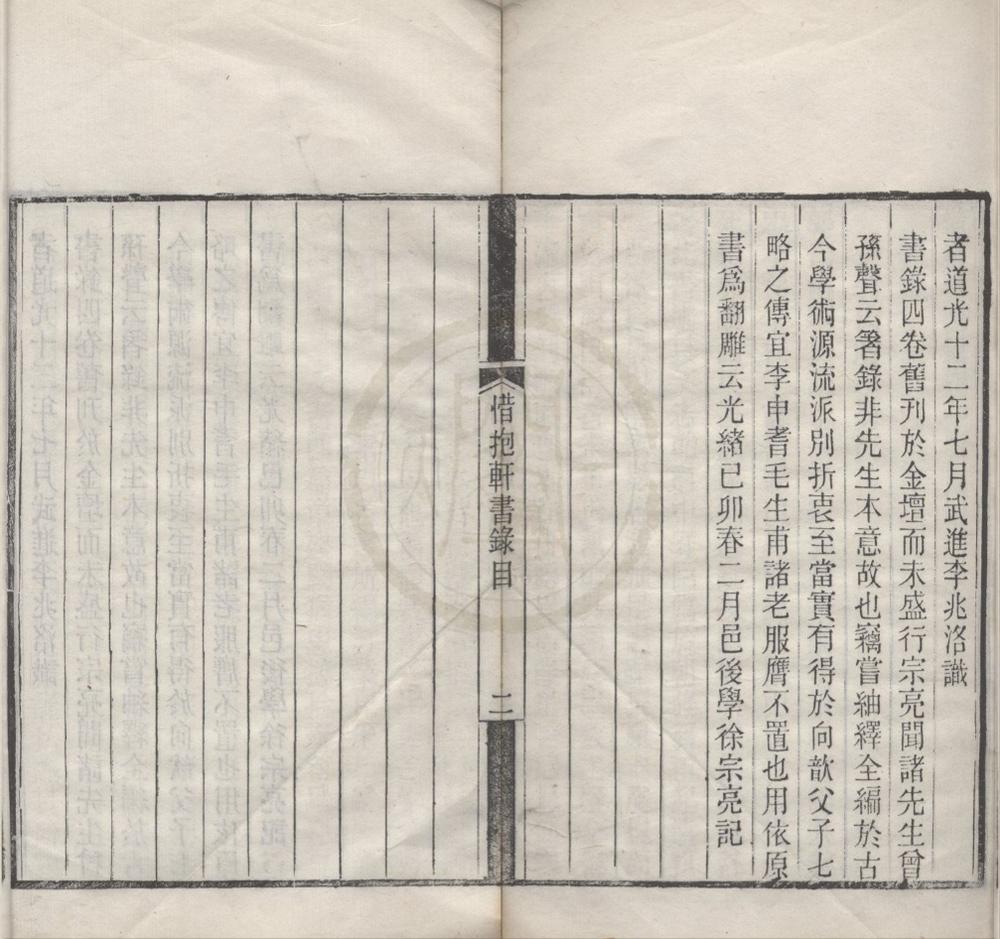 者道光十二年七月武進李兆洛識
書錄四卷舊刊於金壇而未盛行宗亮聞諸先生曾
孫聲云署錄非先生本意故也竊嘗紬繹全編於古
今學術源流派別折衷至當實有得於向歆父子七
略之傳宜李申耆毛生甫諸老服膺不置也用依原
書爲翻雕云光緒己卯春二月邑後學徐宗亮記
惜抱軒書錄目
二